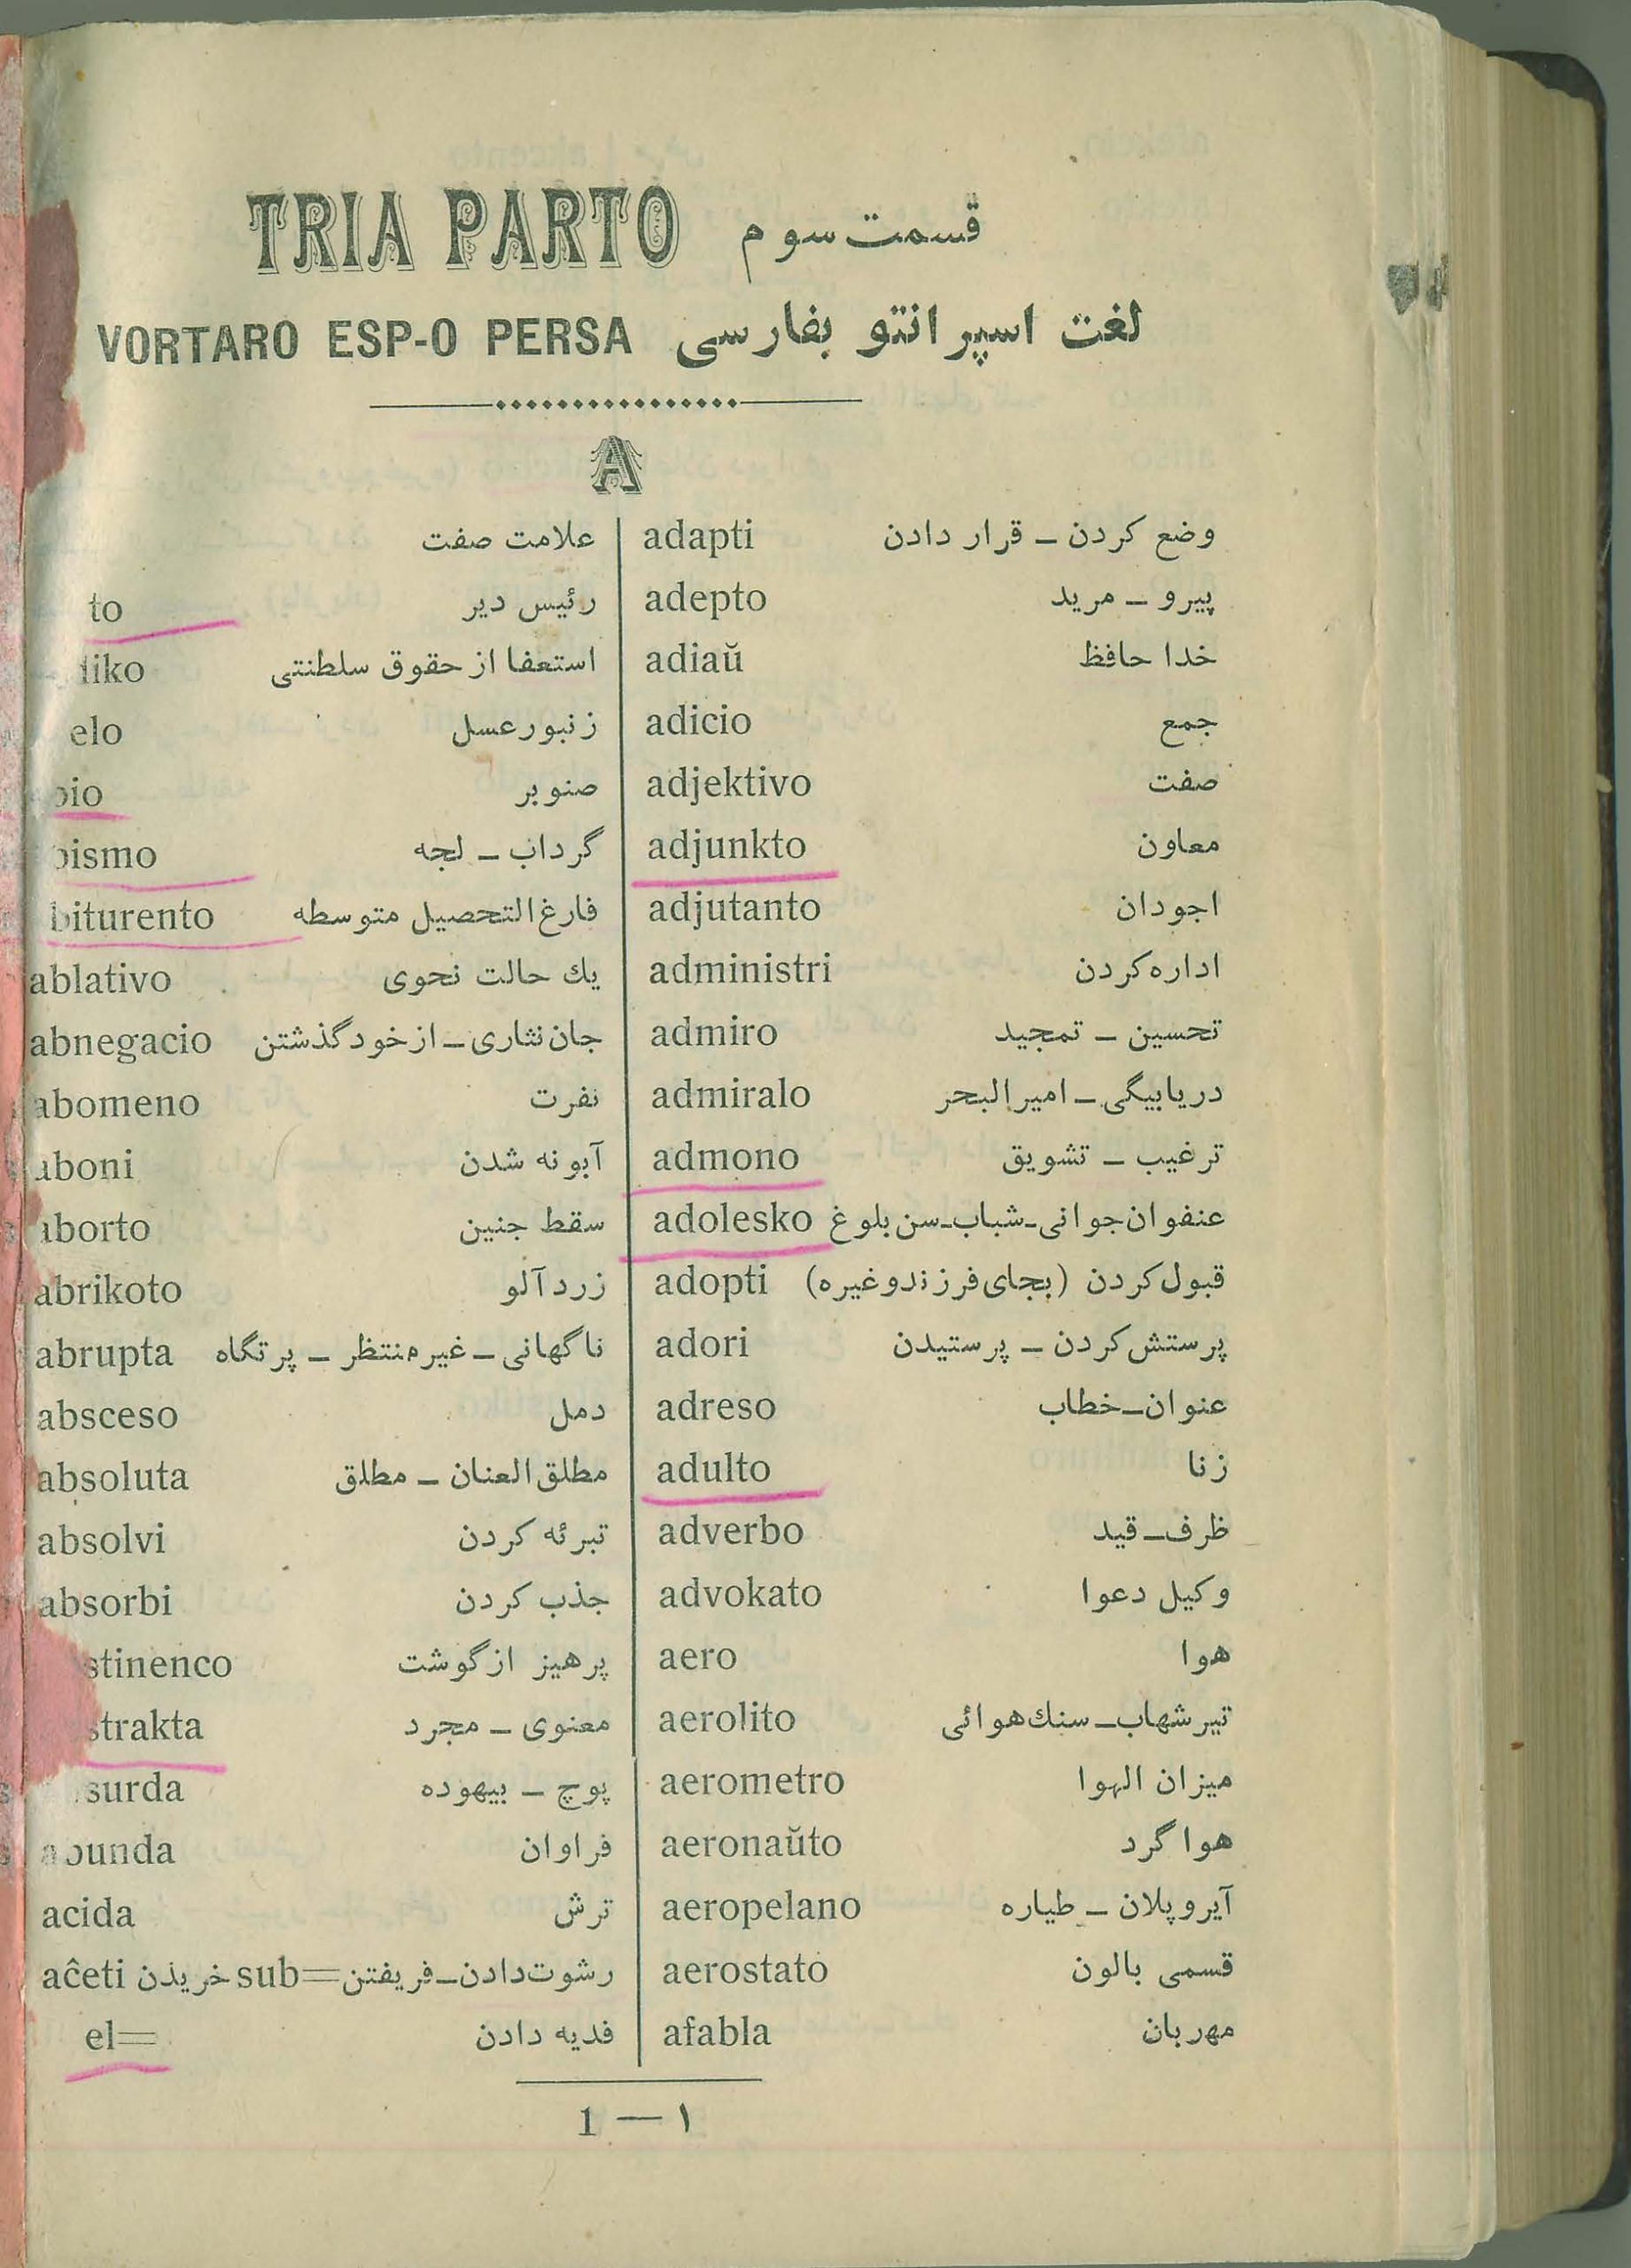 TRIA PARTO قسمت سوم
VORTARO ESP-O PERSA لغت اسپرانتو بفارسی
A
علامت صفت
to رئیس دیر
diko استعفا از حقوق سلطنتی
elo زنبورعسل
bio صنوبر
bismo گرداب ـ لجه
biturento فارغ التحصیل متوسطه
ablativo یك حالت نحوی
abnegacio جان نثاری ـ ازخودگذشتن
abomeno نفرت
aboni آبونه شدن
aborto سقط جنین
abrikoto زردآلو
abrupta ناگهانی ـ غیرمنتظر ـ پرتگاه
absceso دمل
absoluta مطلق العنان ـ مطلق
absolvi تبرئه کردن
absorbi جذب کردن
stinenco پرهیز ازگوشت
strakta معنوی ـ مجرد
surda پوچ ـ بیهوده
abunda فراوان
acida ترش
aĉeti خریدن sub= رشوت دادن ـ فریفتن
el= فدیه دادن
adapti وضع کردن ـ قرار دادن
adepto پیرو ـ مرید
adiaŭ خدا حافظ
adicio جمع
adjektivo صفت
adjunkto معاون
adjutanto اجودان
administri اداره کردن
admiro تحسین ـ تمجید
admiralo دریابیگی ـ امیرالبحر
admono ترغیب ـ تشویق
adolesko عنفوان جوانی ـ شباب ـ سن بلوغ
adopti قبول کردن (بجای فرزندوغیره)
adori پرستش کردن ـ پرستیدن
adreso عنوان ـ خطاب
adulto زنا
adverbo ظرف ـ قید
advokato وکیل دعوا
aero هوا
aerolito تیرشهاب ـ سنك هوائی
aerometro میزان الهوا
aeronaŭto هواگرد
aeropelano آیروپلان ـ طیاره
aerostato قسمی بالون
afabla مهربان
1 — ۱